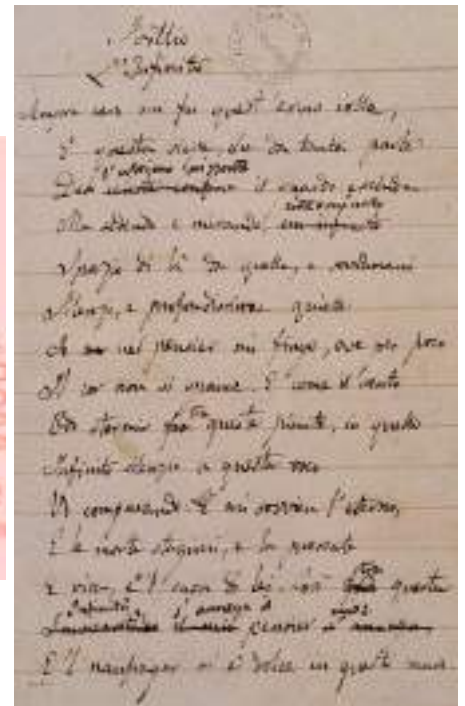 Idillio
L'Infinito
Sempre caro mi fu quest'ermo colle,
E questa siepe, che da tanta parte
l'ultimo orizzonte
De il guardo esclude.
Ma sedendo e mirando, un infinito
Spazio di là da quella, e sovrumani
Silenzi, e profondissima quiete
Io nel pensier mi fingo, ove per poco
Il cor non si spaura. E come il vento
Odo stormir fra queste piante, io quello
Infinito silenzio a questa voce
Vo comparando. E mi sovvien l'eterno,
E le morte stagioni, e la presente
E viva, e 'l suon di lei. Così questa
Infinità s'annega il
pensier
E 'l naufragar m'è dolce in questo mare.